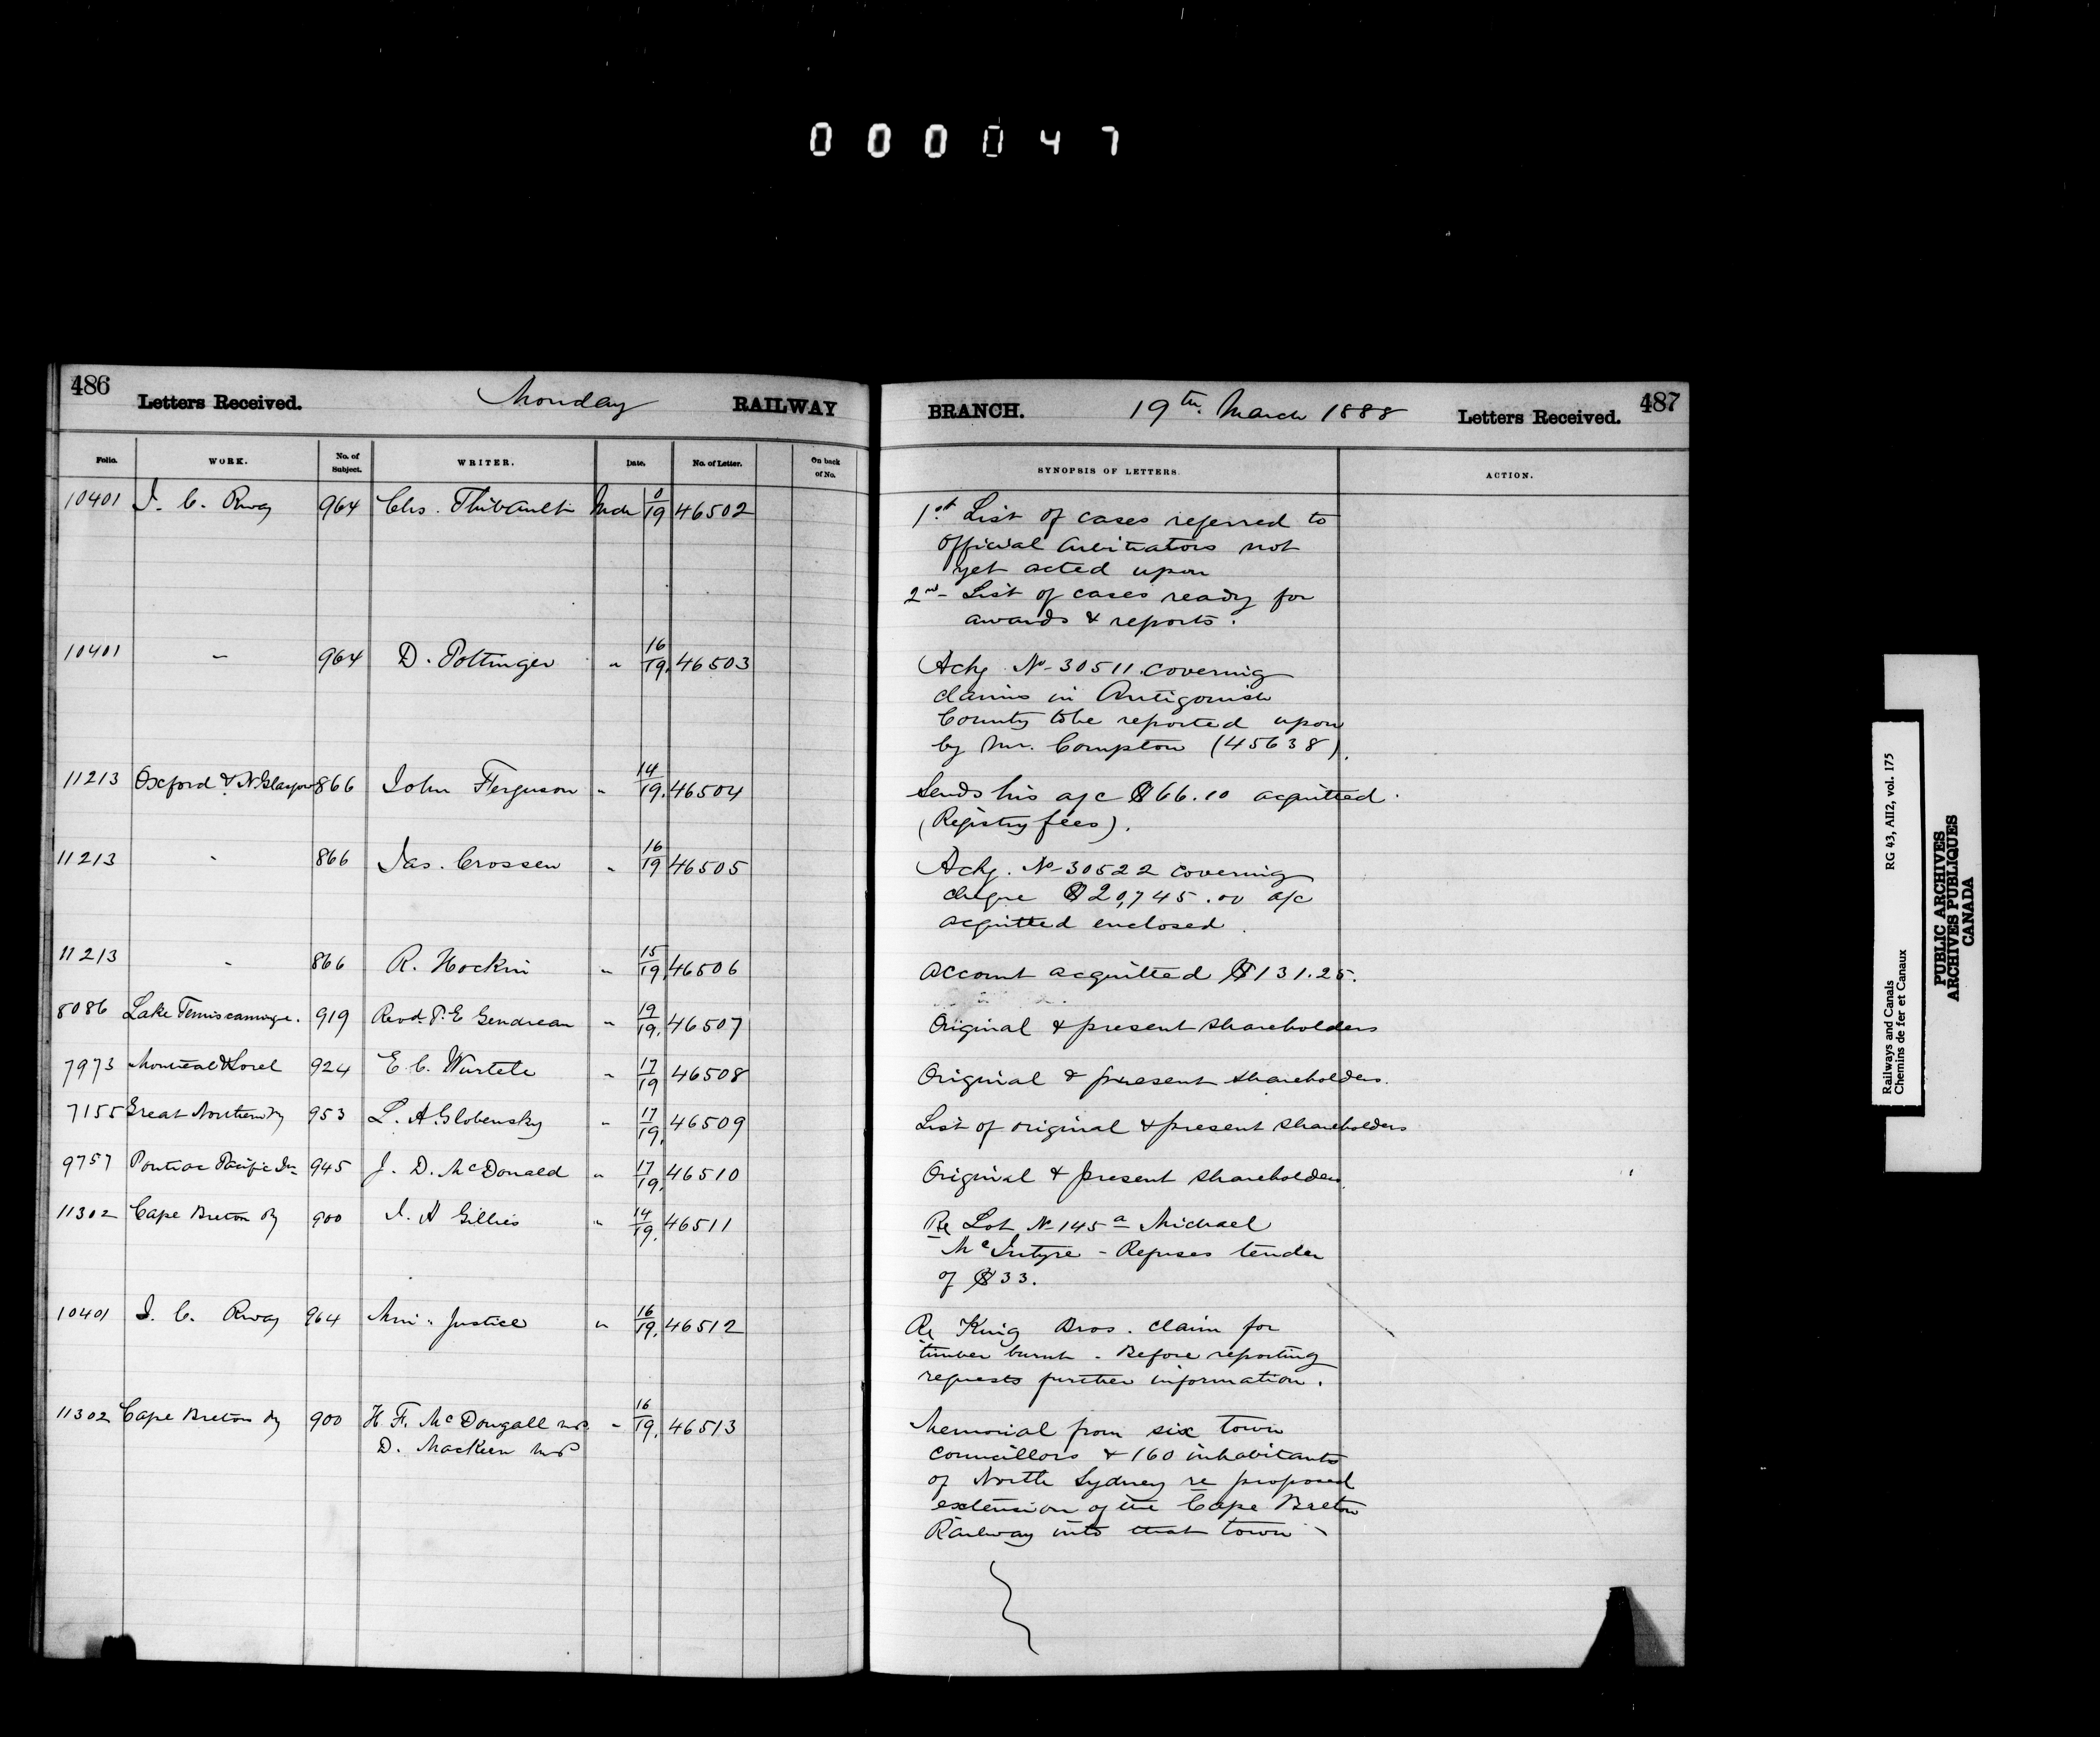 000047
486
Letters Received.
Monday
RAILWAY
BRANCH.
19th. March 1888
Letters Received.
487
Folio.
WORK.
No. of Subject.
WRITER.
Date.
No. of Letter.
On back of No.
SYNOPSIS OF LETTERS.
ACTION.
10401 I. C. Rway 964 Chs. Thibault Mch 0/19 46502
1st List of cases referred to
official arbitrators not
yet acted upon
2nd - List of cases ready for
awards & reports.
10401 " 964 D. Pottinger " 16/19. 46503
Ackg No- 30511. covering
claims in Antigonish
County to be reported upon
by Mr. Compton (45638).
11213 Oxford & N. Glasgow 866 John Ferguson " 14/19. 46504
Sends his a/c $66.10 acquitted.
(Registry fees).
11213 " 866 Jas. Crossen " 16/19 46505
Ackg. No-30522 covering
cheque $20,745.00 a/c
acquitted enclosed.
11213 " 866 R. Hockin " 15/19. 46506
Account acquitted $131.25.
8086 Lake Temiscamingue. 919 Revd. P. E Gendreau " 19/19. 46507
Original & present shareholders
7973 Montreal & Sorel 924 E. C. Wurtele " 17/19 46508
Original & present shareholders.
7155 Great Northern Ry 953 L. A. Globensky " 17/19. 46509
List of original & present shareholders
9757 Pontiac Pacific Jn 945 J. D. McDonald " 17/19. 46510
Original & present shareholders.
11302 Cape Breton Ry 900 J. A Gillies " 14/19. 46511
Re Lot No-145a Michael
McIntyre - Refuses tender
of $33.
10401 I. C. Rway 964 Min. Justice " 16/19. 46512
Re King Bros. claim for
timber burnt. Before reporting
requests further information.
11302 Cape Breton Ry 900 H. F. McDougall MP. " 16/19. 46513
D. MacKeen MP
Memorial from six town
councillors & 160 inhabitants
of North Sydney re proposed
extension of the Cape Breton
Railway into that town
Railways and Canals RG 43, AII2, vol. 175
Chemins de fer et Canaux
PUBLIC ARCHIVES
ARCHIVES PUBLIQUES
CANADA